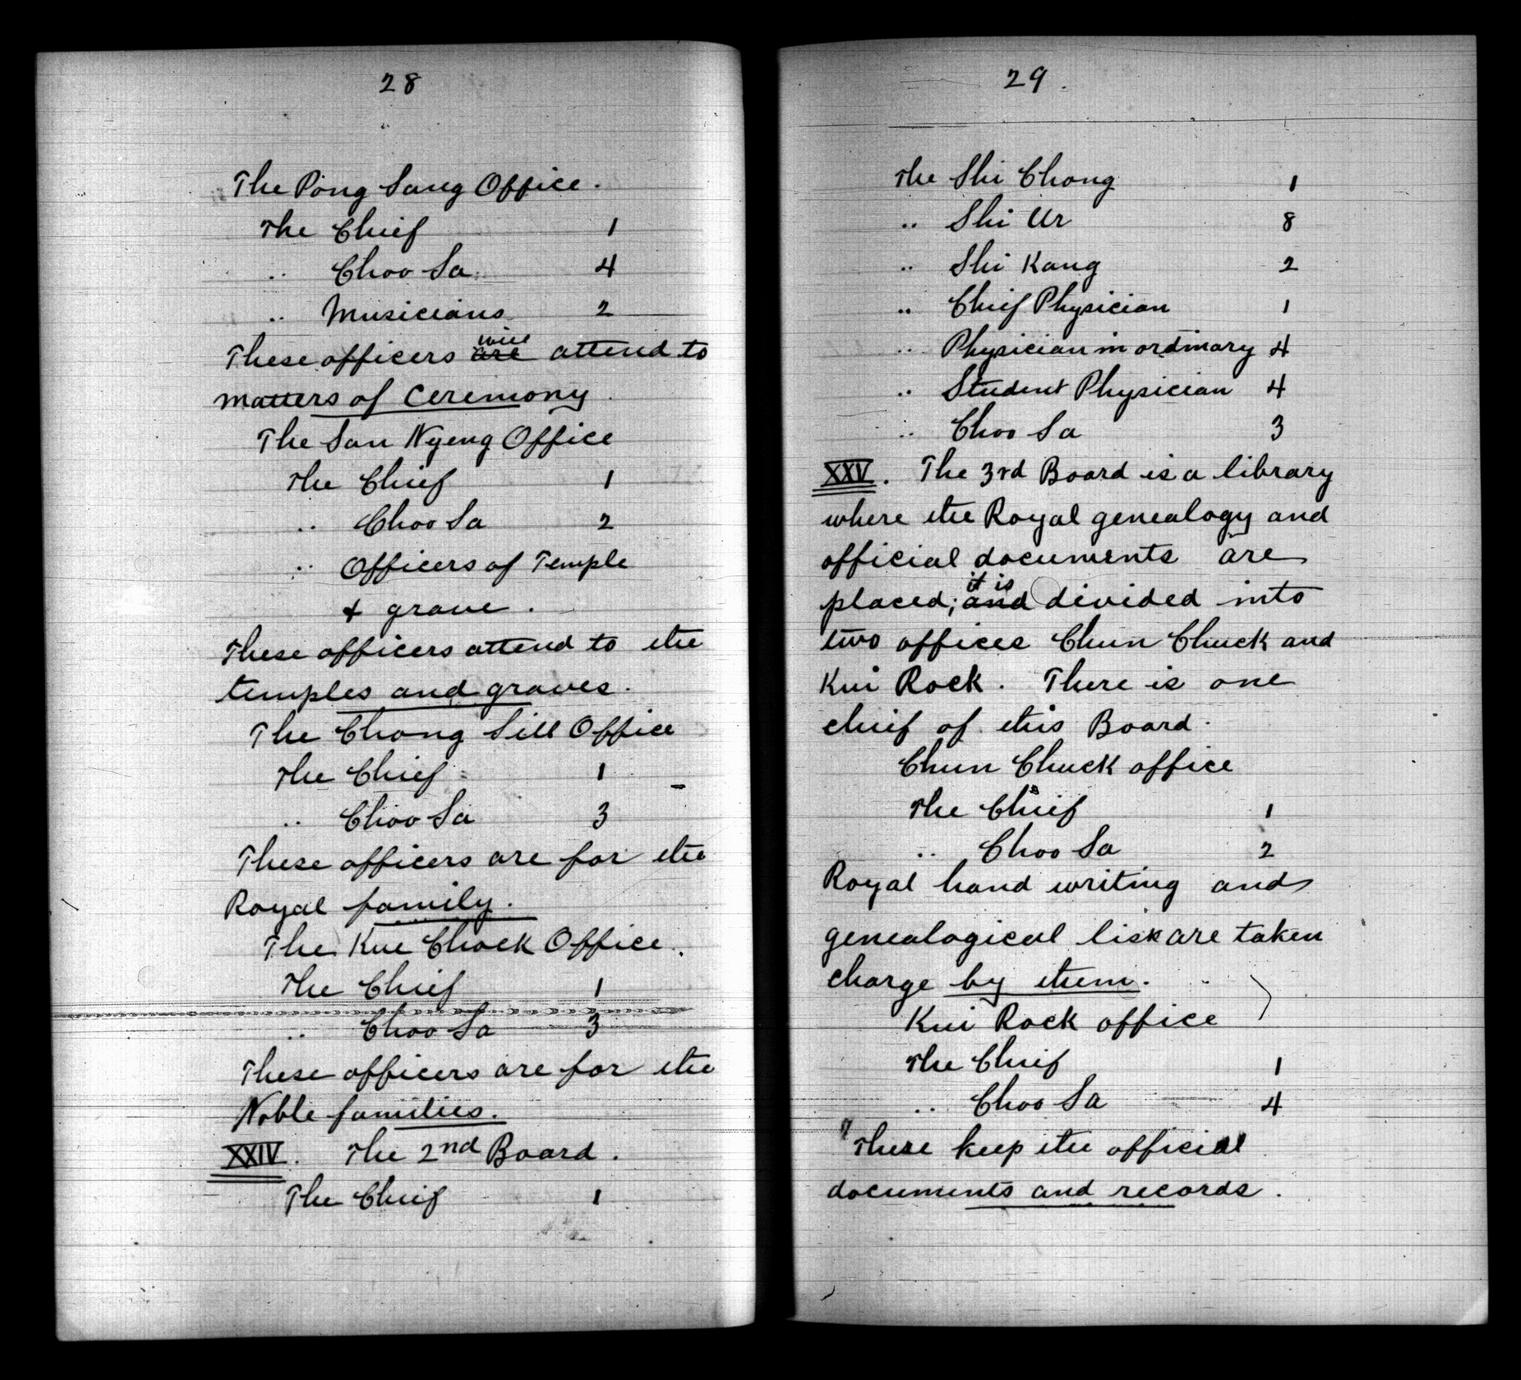 28
The Pong Sang Office.
The Chief 1
" Choo Sa 4
" Musicians 2
will
These officers are attend to
matters of Ceremony
The San Nyeng Office
The Chief 1
" Choo Sa 2
" Officers of Temple
& grave .
These officers attend to the
temples and graves.
The Chong Sill Office
The Chief 1
" Choo Sa 3
These officers are for the
Royal family.
The Kue Chock Office.
The Chief 1
" Choo Sa 3
These officers are for the
Noble families.
XXIV. The 2nd Board.
The Chief 1
29.
The Shi Chong 1
" Shi Ur 8
" Shi Kang 2
" Chief Physician 1
" Physician in ordinary 4
" Student Physician 4
" Choo Sa 3
XXV. The 3rd Board is a library
where the Royal genealogy and
official documents are
it is
placed; and divided into
two offices Chun Chuck and
Kui Rock. There is one
chief of this Board.
Chun Chuck office
The Chief 1
" Choo Sa 2
Royal hand writing and
genealogical lisk are taken
charge by them.
Kui Rock office
The Chief 1
" Choo Sa 4
These keep the official
documents and records.